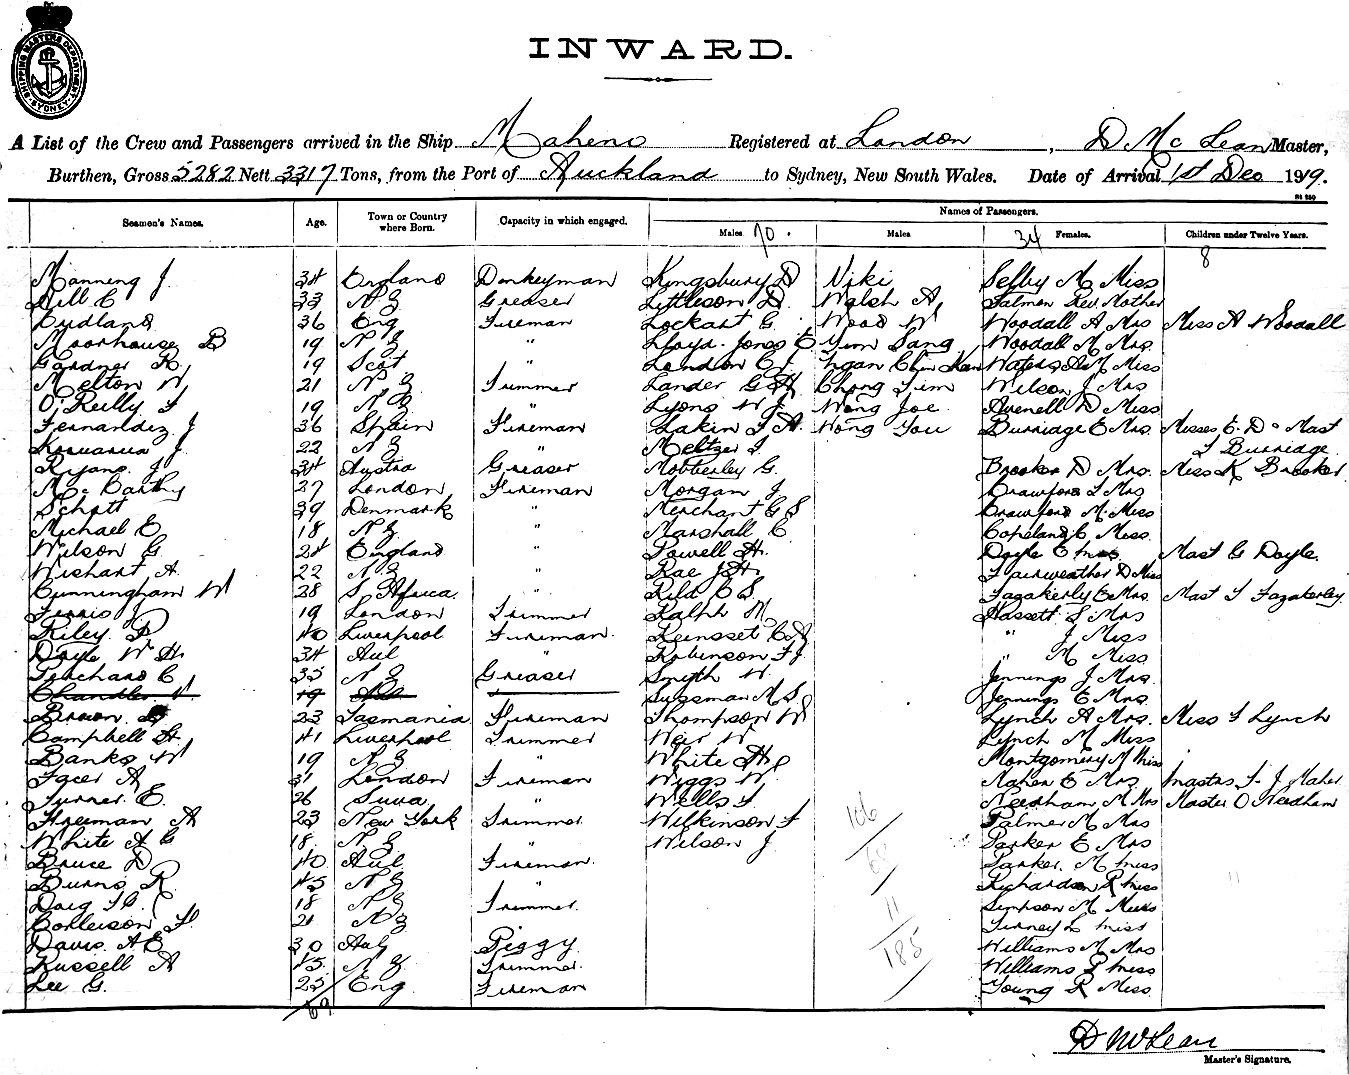 SHIPPING MASTERS DEPARTMENT SYDNEY
INWARD.
A List of the Crew and Passengers arrived in the Ship Maheno Registered at London, D McLean Master,
Burthen, Gross 5282 Nett 3317 Tons, from the Port of Auckland to Sydney, New South Wales. Date of Arrival 1st Dec 1919.
Seamen's Names. Age. Town or Country where Born. Capacity in which engaged. Names of Passengers.
Males 70. Males 34 Females. Children under Twelve Years.
8
Manning J. 34 England Donkeyman Kingsbury D Niki Selby M Miss
Dill C 33 N Z Greaser Littleson D. Walsh A Salmon Rev Mother
Cudland 36 Eng Fireman Lockart G. Wood W Woodall A Mrs Miss A Woodall
Moorhouse B 19 N Z " Lloyd-Jones E Yim Sang Woodall M Mrs
Gardner R 19 Scot " London C J. Ngan Chin Kan Waters M Miss
Melton W 21 N Z Trimmer Lander G H Chong Tim Wilson J Mrs
O'Reilly F 19 N Z " Lyons W J. Wong Joe Avenell D Miss
Fernandez J 36 Spain Fireman Lakin F A Wong You Burridge E Mrs. Misses E. D & Mast
22 N Z " Meltzer I. F Burridge
Ryans J 34 Austra Greaser Mobberley G. Brooker D Mrs. Miss K Brooker
McCarthy 27 London Fireman Morgan J Crawford L Mrs
Schott 39 Denmark " Merchant G S Crawford M Miss
Michael E 18 N Z " Marshall C Copeland C Miss.
Wilson G 24 England " Powell H. Doyle E Miss Mast G Doyle.
Wishart A. 22 N Z " Rae J H. Fairweather D Miss
Cunningham W 28 S Africa " Reid C S. Fazakerly E Mrs. Mast F Fazakerley.
Ferris J 19 London Trimmer Ralph M Hassett S Mrs
Riley P 40 Liverpool Fireman. Reinsset C A " J Miss
Doyle W H. 34 Aul " Robinson F J. " M Miss
35 N Z Greaser Smyth W. Jennings J Mrs.
Chandler V 19 Sussman M S Jennings E Mrs.
Brown 23 Tasmania Fireman Thompson W Lynch A Mrs. Miss F Lynch
Campbell H. 41 Liverpool Trimmer Weir W Lynch M Miss
Banks W 19 N Z " White H Montgomery M Miss
Facer A 31 London Fireman Wiggs W. Maher E Mrs Masters F. J Maher
Turner E. 26 Suva " Wells F. Needham M Mrs Master O Needham
Freeman A 23 New York Trimmer Wilkinson F Palmer M Mrs
White A G 18 N Z " Wilson J Parker E Mrs
Bruce D 40 Aul Fireman. Parker. M Miss
Burns R. 45 N Z " Richardson R Miss
Doig 18 N Z Trimmer. Simpson M Miss
21 N Z Tierney L Miss
Davis A E 30 Aul Peggy Williams M Mrs
Russell A 45 N Z Trimmer. Williams R Miss
Lee G. 25 Eng Fireman Young R Miss
69
106
68
11
185
D McLean
Master's Signature.